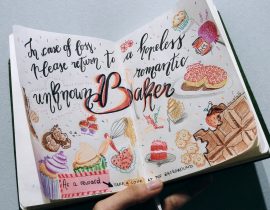 In case of loss,
Please return to a hopeless
romantic
unknown Baker
As a reward